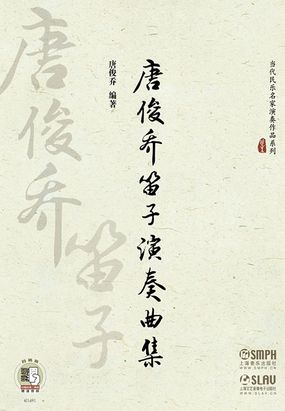 当代民乐名家演奏作品系列
唐俊乔笛子演奏曲集
唐俊乔 编著
唐俊乔
笛子
SMPH
上海音乐出版社
WWW.SMPH.CN
SLAV
上海文艺音像电子出版社
WWW.SLAV.CN